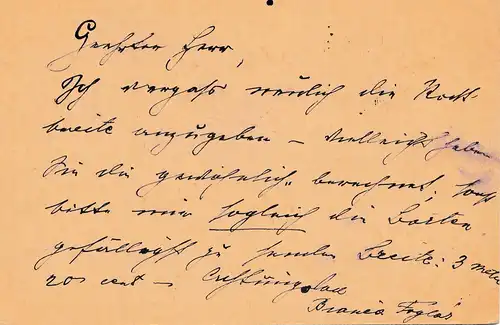 Geehrter Herr,
Ich vergass neulich die Rock-
breite anzugeben – vielleicht haben
Sie die gewöhnlich berechnet; sonst
bitte mir sogleich die Borten
gefälligst zu senden Breite: 3 meter
20 cent – Achtungsvoll
Bianca